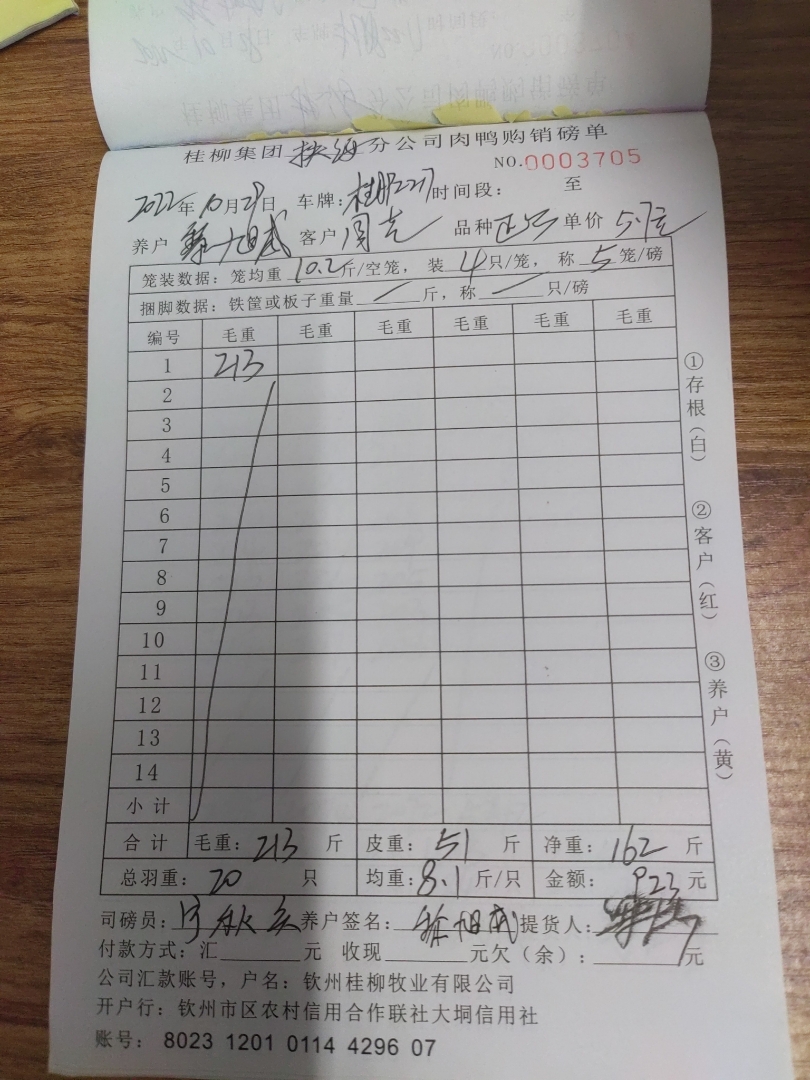 桂柳集团 分公司肉鸭购销磅单
NO.0003705
2022年10月29日 车牌: 时间段: 至
养户 客户 周 品种 正 单价 5.7元
笼装数据：笼均重 10.2 斤/空笼，装 4 只/笼，称 5 笼/磅
捆脚数据：铁筐或板子重量 / 斤，称 / 只/磅
编号 毛重 毛重 毛重 毛重 毛重 毛重
1 213
2
3
4
5
6
7
8
9
10
11
12
13
14
小计
合计 毛重：213 斤 皮重：51 斤 净重：162 斤
总羽重：20 只 均重：8.1 斤/只 金额：923 元
司磅员： 养户签名： 提货人：
付款方式：汇 元 收现 元欠（余）： 元
公司汇款账号，户名：钦州桂柳牧业有限公司
开户行：钦州市区农村信用合作联社大垌信用社
账号： 8023 1201 0114 4296 07
①存根（白）
②客户（红）
③养户（黄）